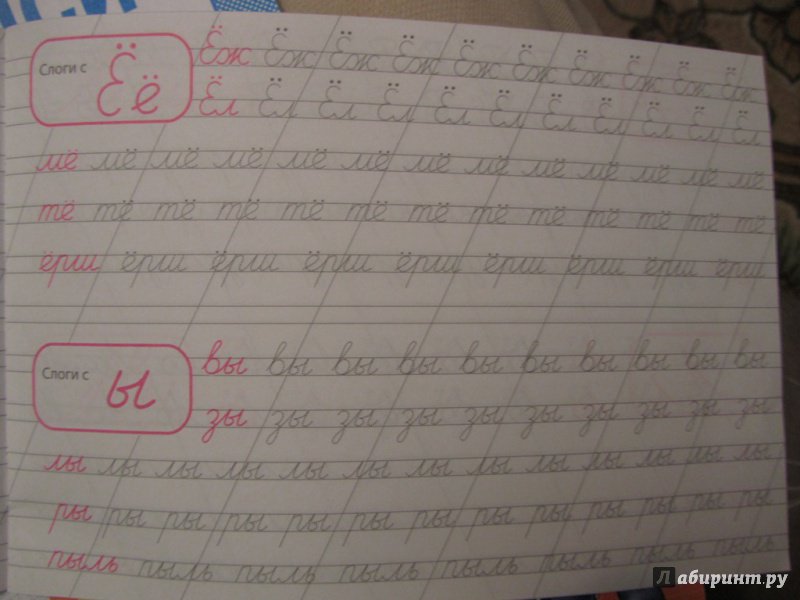 Слоги с Ёё
Ёж Ёж Ёж Ёж Ёж Ёж Ёж Ёж Ёж Ёж
Ёл Ёл Ёл Ёл Ёл Ёл Ёл Ёл Ёл Ёл Ёл
мё мё мё мё мё мё мё мё мё мё мё мё мё
тё тё тё тё тё тё тё тё тё тё тё тё тё
ёрш ёрш ёрш ёрш ёрш ёрш ёрш ёрш ёрш
Слоги с ы
вы вы вы вы вы вы вы вы вы вы
зы зы зы зы зы зы зы зы зы зы
лы лы лы лы лы лы лы лы лы лы лы лы лы
ры ры ры ры ры ры ры ры ры ры ры ры ры
пыль пыль пыль пыль пыль пыль пыль пыль
Лабиринт.ру